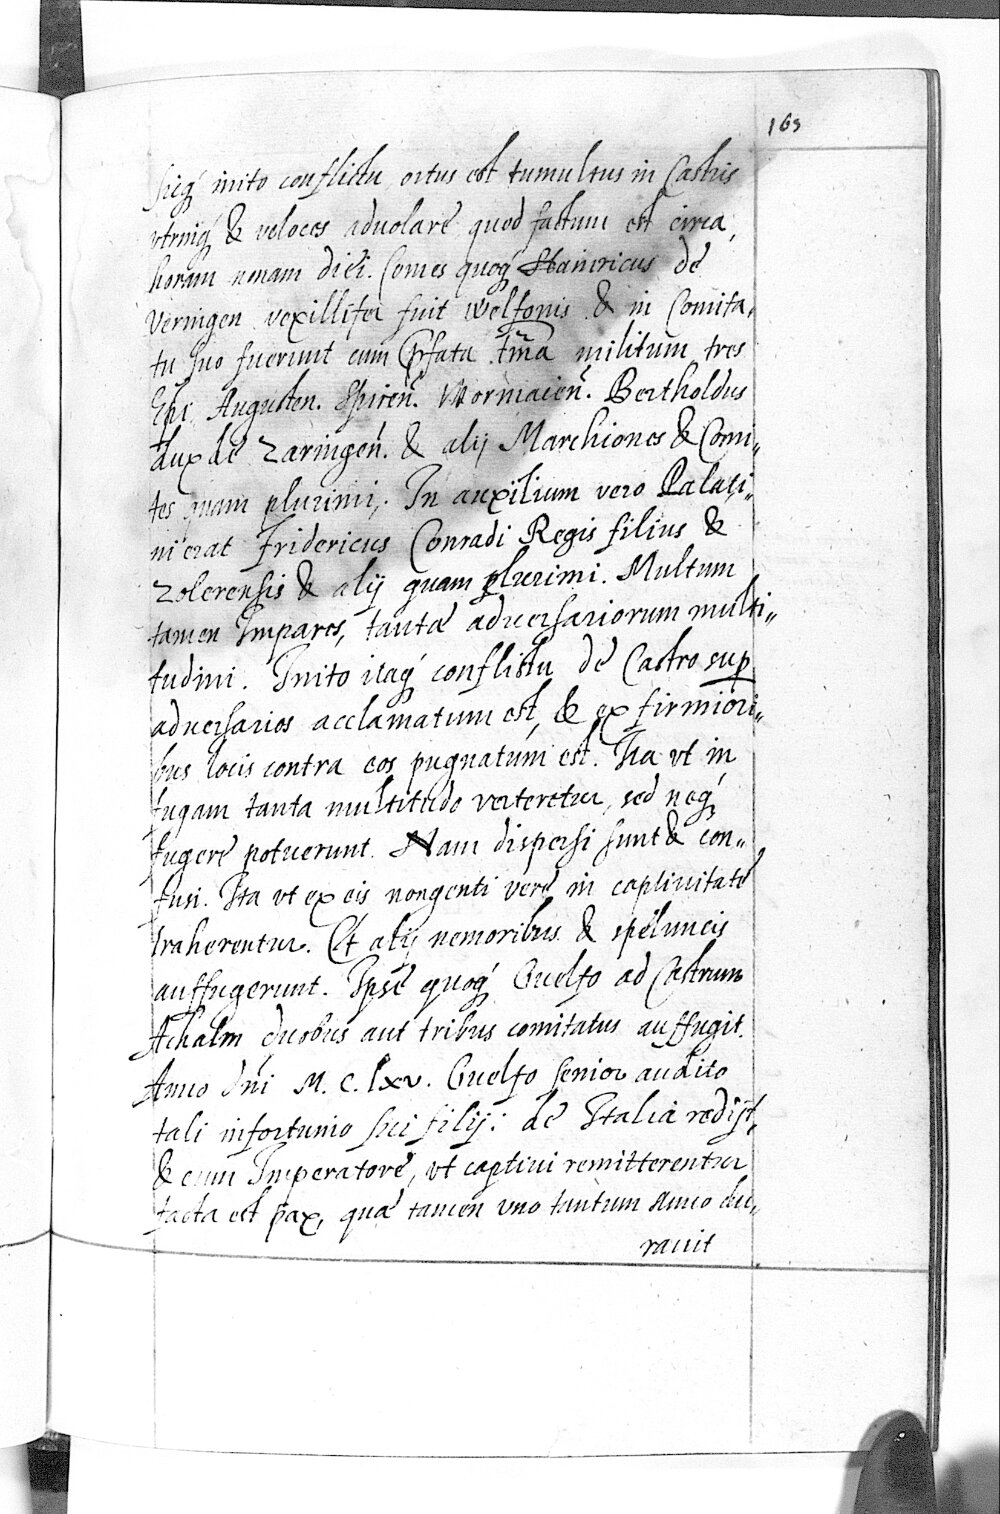 165
sicq́ inito conflictu ortus est tumultus in Castris
vtrinq́ & veloces aduolare quod factum est circa
horam nonam diei. Comes quoq́ Hainricus de
Veringen vexillifer fuit Welfonis & in Comita,
tu suo fuerunt cum Prfata tm̃a militum tres
Epi Augusten. Spireñ. Wormacieñ. Bertholdus
dux de Zaringeń. & alij Marchiones & Comi„
tes quam plurimi, In auxilium vero Palati„
ni erat Fridericus Conradi Regis filius &
Zolerensis & alij quam plurimi. Multum
tamen Impares, tantae aduersariorum multi„
tudini. Inito itaq́ conflictu de Castro sup
aduersarios acclamatum est, & ex firmiori„
bus locis contra eos pugnatum est. Ita vt in
fugam tanta multitudo verteretur, sed neq́
fugere potuerunt. Nam dispersi sunt & con„
fusi. Ita vt ex eis nongenti vere in captiuitate
traherentur. Et alij nemoribus & speluncis
auffugerunt. Ipse quoq́ Guelfo ad Castrum
Achalm duobus aut tribus comitatus auffugit.
Anno dni M. C. lxv. Guelfo senior audito
tali infortunio sui filij: de Italia redijt,
& cum Imperatore, vt captiui remitterentur
facta est pax, quae tamen vno tantum Anno du„
rauit